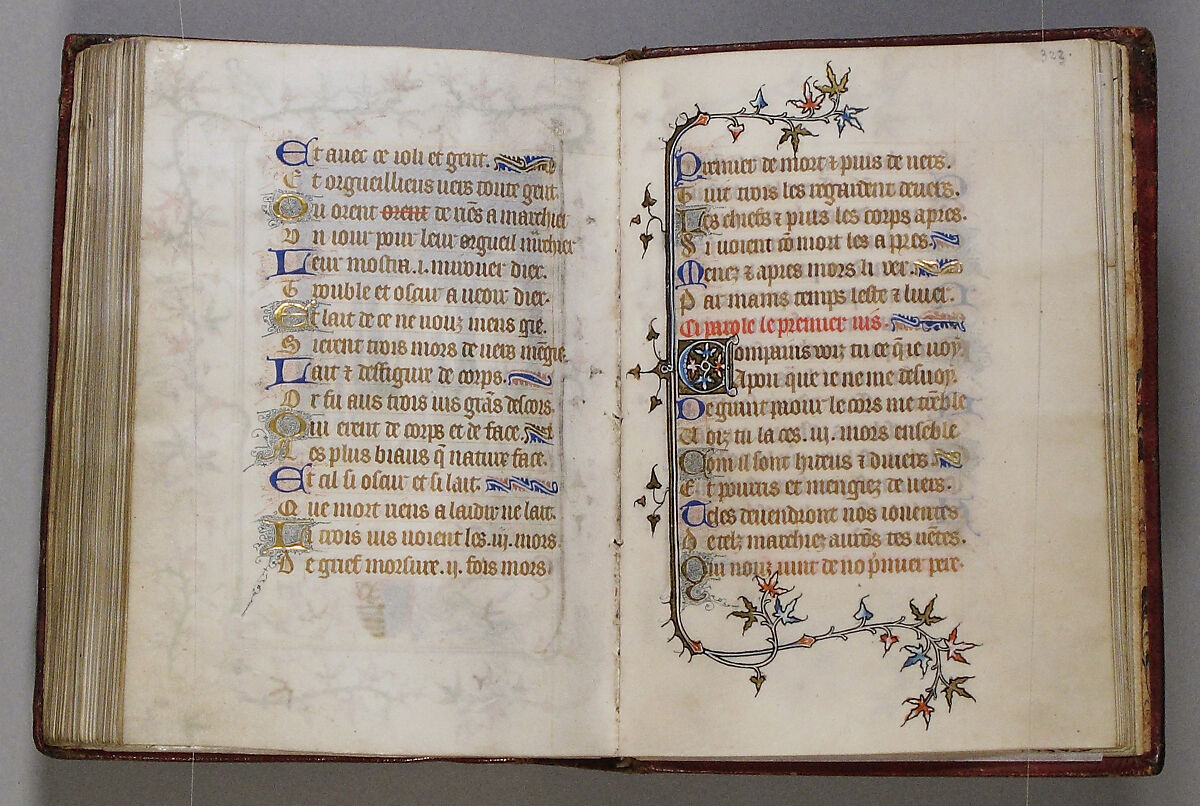 Et auec ce ioli et gent.
Et orgueilliens uers toute gent.
Qu orent orent de nēs a marchier
Vn iour pour leur orgueil
Leur mostra .i. mirouer dier.
Trouble et oscur a ueoir dier.
Et lait de ce ne uouz mens gie.
Sierent trois mors de uers mēgie.
Lait & deffigure de corps.
Or fu aus trois uis grās descors.
Qui erent de corps et de face.
Les plus biaus q̄ nature face.
Et cil si oscur et si lait.
Que mort uens a laidir ne lait.
Li trois uis uoient les .iij. mors
De grief morsure .ij. fois mors
323.
Premier de mort & puis de uers.
Tuit trois les regardent deuers.
Les chiefs & puis les corps apres.
Si uoient cō mort les a pres.
Menez & apres mors li uer.
Par mains temps leste & liuer.
Ci parole le premier uis.
Compains uoiz tu ce q̄ ie uoy.
Apou que ie ne me desuoy.
De grant paour le cors me trēble
Uoiz tu la ces .iij. mors enseble
Com il sont hideus & diuers.
Et pourris et mengiez de uers.
Teles deuendront nos iouentes
De telz marchiez aurōs tes uētes.
Qui nouz uint de no pmier pere.